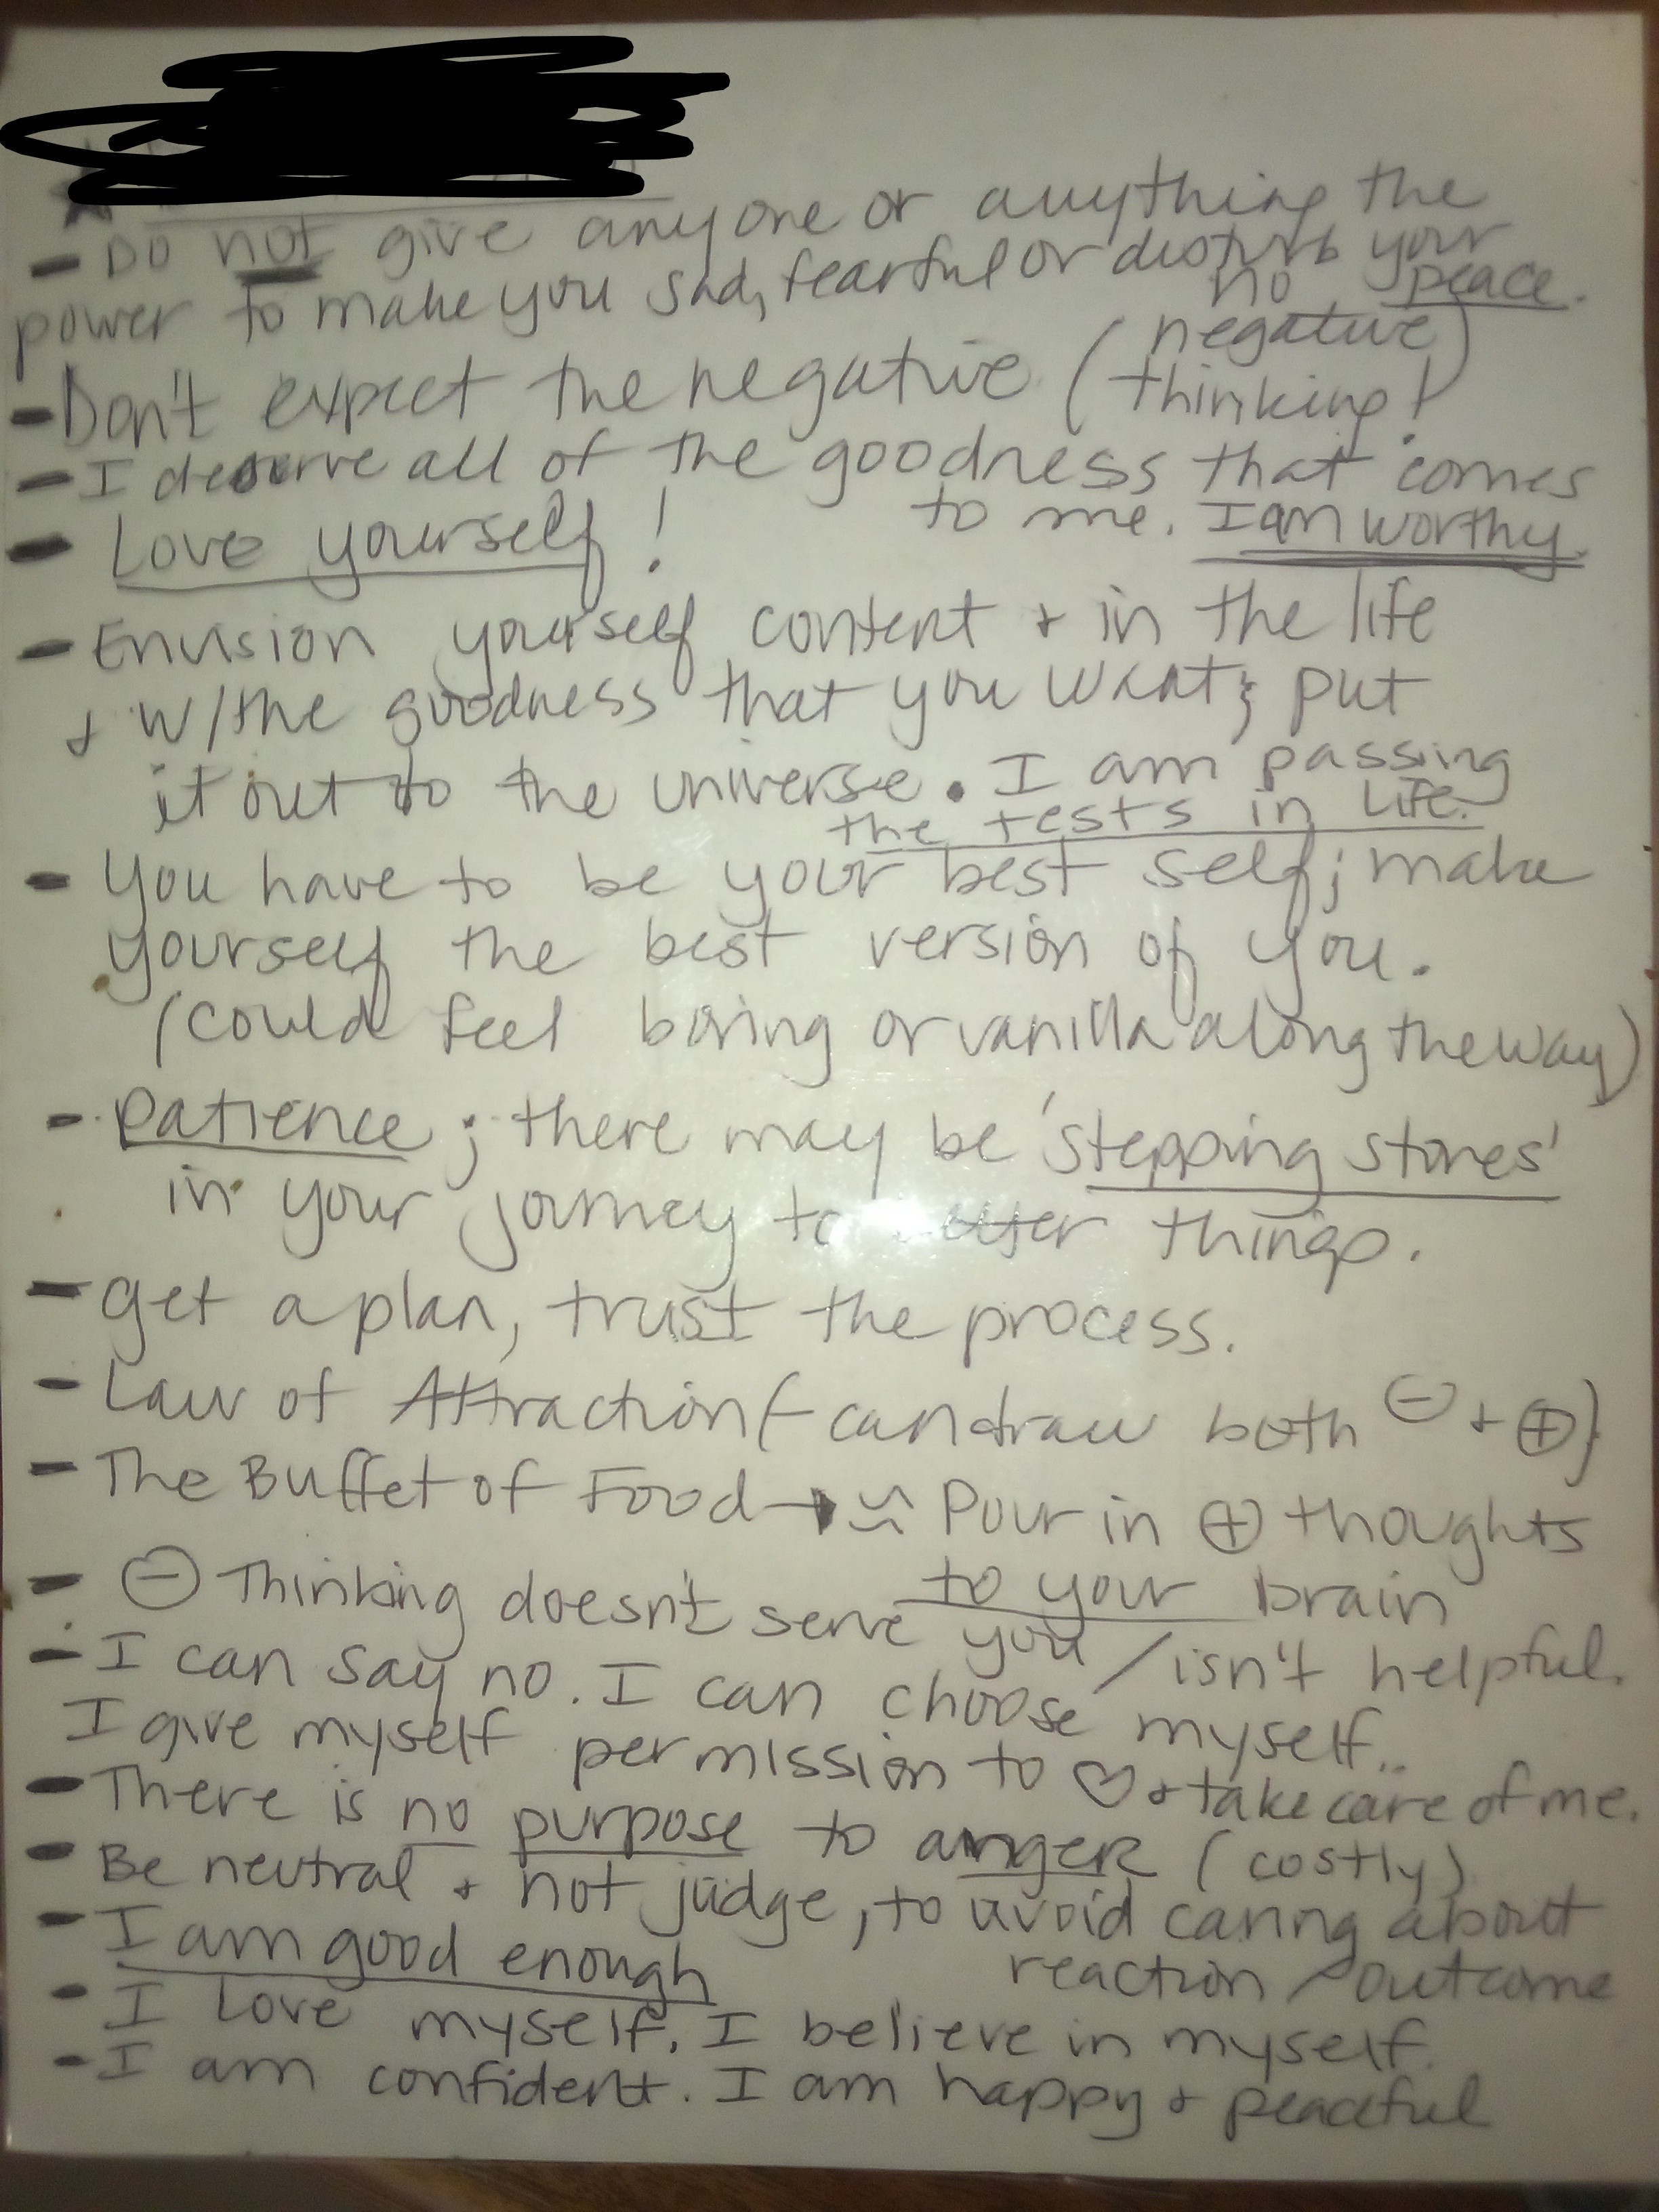 - Do not give anyone or anything the
power to make you sad, fearful or disturb your
peace.
- Don't expect the negative (no negative
thinking!)
- I deserve all of the goodness that comes
to me. I am worthy.
- Love yourself!
- Envision yourself content + in the life
+ w/the goodness that you want; put
it out to the universe. I am passing
the tests in Life.
- You have to be your best self; make
yourself the best version of you.
(could feel boring or vanilla along the way)
- Patience; there may be 'stepping stones'
in your journey to things.
- Get a plan, trust the process.
- Law of Attraction (- can draw both ⊖ + ⊕)
- The Buffet of Food → ≈ Pour in ⊕ thoughts
to your brain
- ⊖ Thinking doesn't serve you / isn't helpful.
- I can say no. I can choose myself..
I give myself permission to ♡ + take care of me.
- There is no purpose to angeR (costly)
- Be neutral + not judge, to avoid caring about
reaction / outcome
- I am good enough
- I Love myself. I believe in myself.
- I am confident. I am happy + peaceful